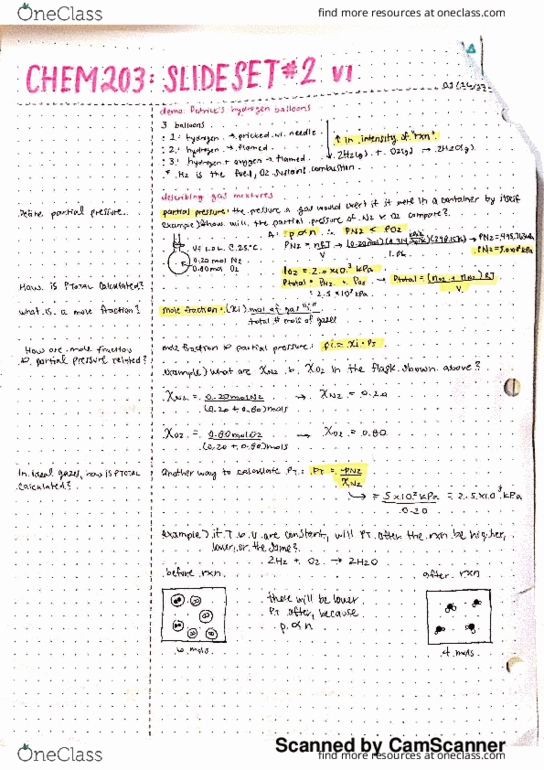 OneClass
find more resources at oneclass.com
CHEM203: SLIDESET #2 V1
demo: Patrice's hydrogen balloons
3 balloons
1: hydrogen → pricked w. needle
2: hydrogen → flamed
3: hydrogen + oxygen → flamed
↑ in intensity of "rxn"
2H2(g) + O2(g) → 2H2O(g)
* H2 is the fuel, O2 sustains combustion.
describing gas mixtures
Define partial pressure.
partial pressure: the pressure a gas would exert if it were in a container by itself
example) how will the partial pressure of N2 & O2 compare?
A: p ∝ n ∴ PN2 < PO2
V = 1.0L @ 25°C
0.20 mol N2
0.80 mol O2
PN2 = nRT
V
PO2 = 2.0 x 10³ kPa
How is PTotal calculated?
Ptotal = PN2 + PO2
= 2.5 x 10³ kPa
→ Ptotal = (nN2 + nO2) RT
V
what is a mole fraction?
mole fraction: (Xi) mol of gas "i"
total # mols of gases
How are mole fraction
& partial pressure related?
mole fraction & partial pressure: pi = Xi · PT
example) what are XN2 & XO2 in the flask shown above?
XN2 = 0.20 mol N2 → XN2 = 0.20
(0.20 + 0.80) mols
XO2 = 0.80 mol O2 → XO2 = 0.80
(0.20 + 0.80) mols
In ideal gases, how is PTOTAL
calculated?
Another way to calculate PT: PT = PN2
XN2
→ = 5 x 10² kPa = 2.5 x 10³ kPa
0.20
example) if T & V are constant, will PT after the rxn be higher,
lower, or the same?
2H2 + O2 → 2H2O
before rxn
after rxn
there will be lower
PT after, because
p ∝ n
6 mols
4 mols
Scanned by CamScanner
OneClass
find more resources at oneclass.com